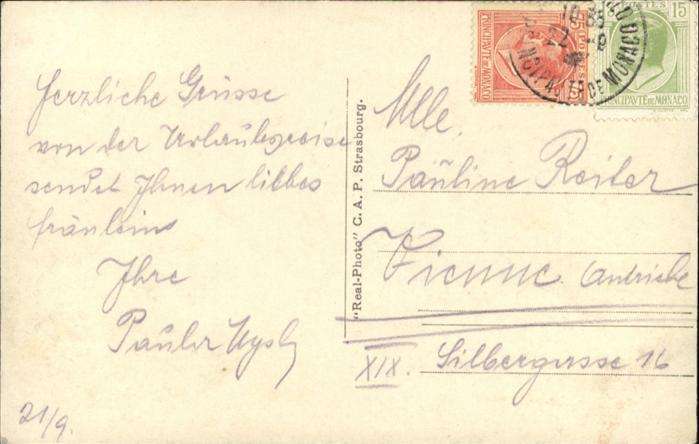 Herzliche Grüsse
von der Urlaubsreise
sendet Ihnen liebes
fräulein
Ihre
Paula
21/9.
"Real-Photo" C. A. P. Strasbourg.
Mlle.
Pauline Reiter
Vienne Autriche
XIX. Silbergasse 16
15
POSTES
PRINCIPAUTÉ DE MONACO
15
PRINCIPAUTÉ DE MONACO
PRINCIPAUTE DE MONACO